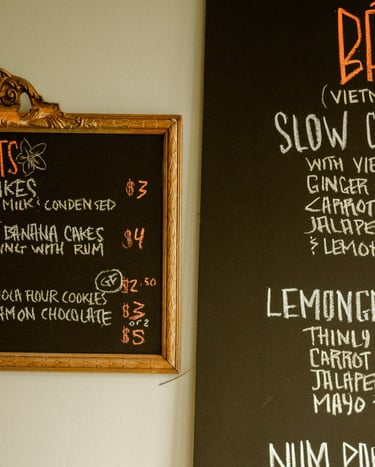 TS
AKES $3
MILK & CONDENSED
BANANA CAKES $4
ING WITH RUM
GF $2.50
OLA FLOUR COOKIES
AMON CHOCOLATE $3
or 2
$5
BÁ
(VIETN
SLOW C
WITH VIE
GINGER
CARROT
JALAPE
& LEMO
LEMONG
THINLY
CARROT
JALAPE
MAYO
NUM PA